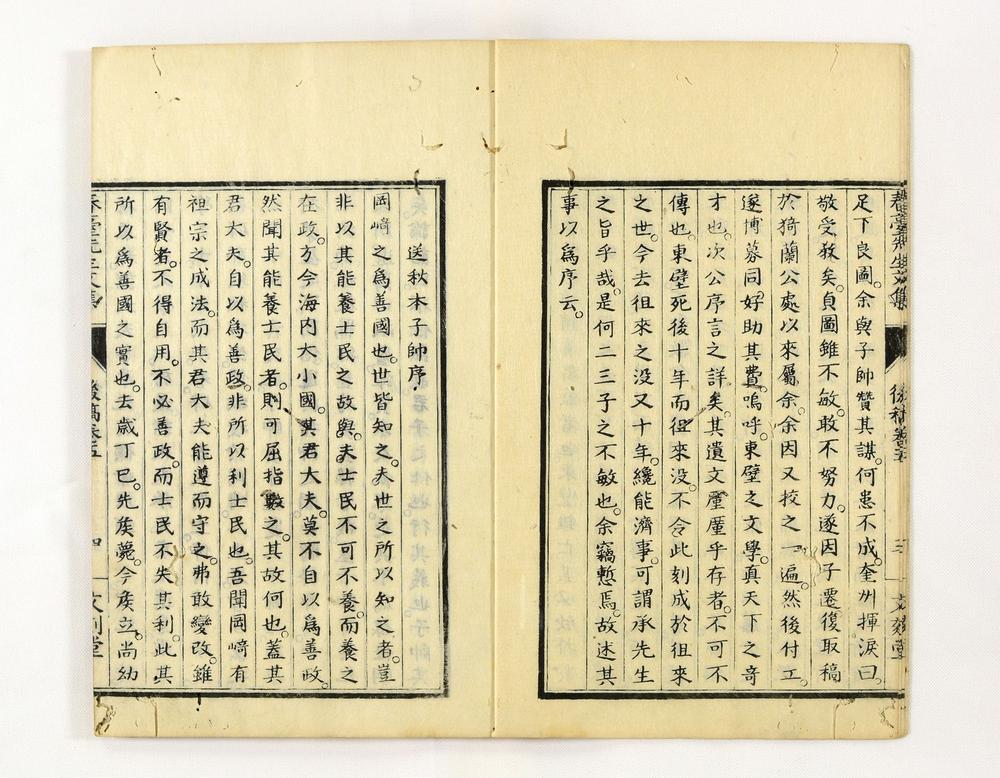 春臺先生文集 後稿卷五 三 文刻堂
足下良圖。余與子帥贊其謀。何患不成。奎州揮淚曰。
敬受敎矣。貞圖雖不敏。敢不努力。遂因子遷。復取稿
於猗蘭公處以來屬余。余因又挍之一遍。然後付工。
遂博募同好助其費。嗚呼。東壁之文學。真天下之奇
才也。次公序言之詳矣。其遺文廑廑乎存者。不可不
傳也。東壁死後十年而徂來没。不令此刻成於徂來
之世。今去徂來之没又十年。纔能濟事。可謂承先生
之旨乎哉。是何二三子之不敏也。余竊慙焉。故述其
事以爲序云。
送秋本子帥序
岡﨑之爲善國也。世皆知之。夫世之所以知之者。豈
非以其能養士民之故與。夫士民不可不養。而養之
在政。方今海内大小國。其君大夫。莫不自以爲善政。
然聞其能養士民者。則可屈指數之。其故何也。蓋其
君大夫。自以爲善政。非所以利士民也。吾聞岡﨑有
祖宗之成法。而其君大夫能遵而守之。弗敢變改。雖
有賢者。不得自用。不必善政。而士民不失其利。此其
所以爲善國之實也。去歲而已先矦薨。今矦立。尚幼
春臺先生文集 後稿卷五 四 文刻堂